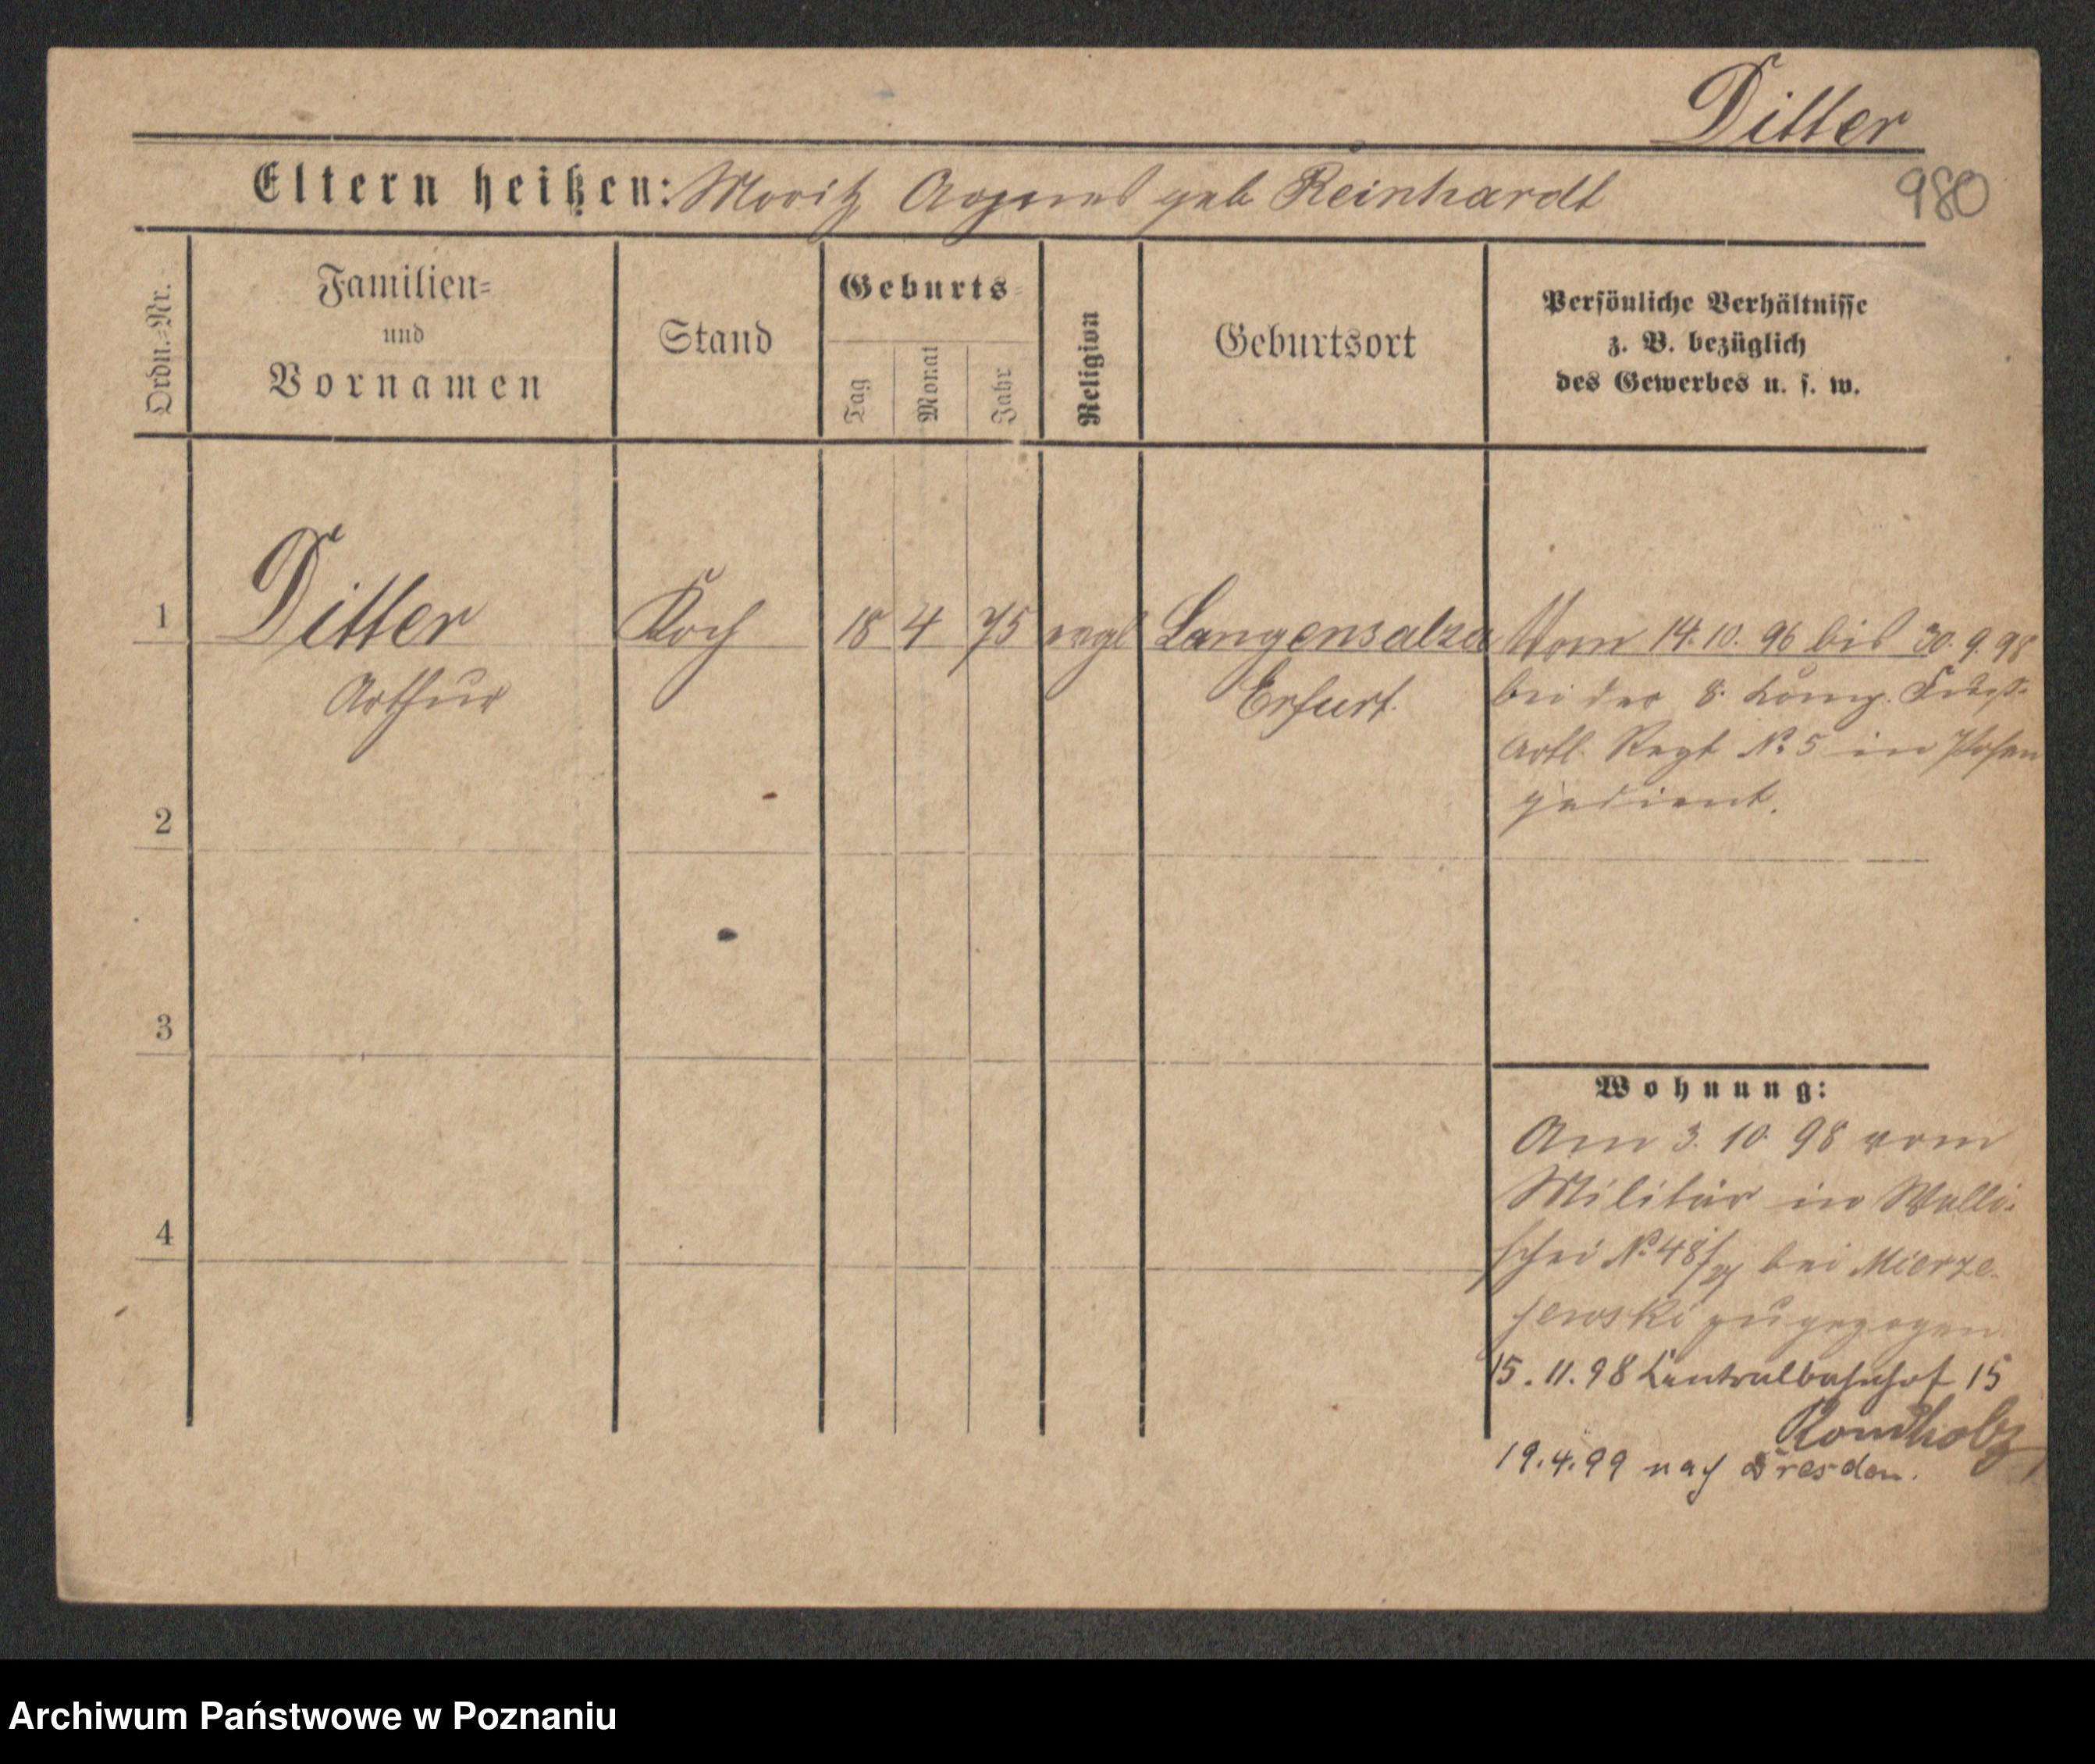 Ditter
980
Eltern heißen: Moritz Agnes geb Reinhardt
Ordn.=Nr.
Familien=
und
Vornamen
Stand
Geburts=
Tag
Monat
Jahr
Religion
Geburtsort
Persönliche Verhältnisse
z. B. bezüglich
des Gewerbes u. s. w.
1 Ditter Koch 18 4 75 evgl Langensalza Vom 14. 10. 96 bis 30. 9. 98
Arthur Erfurt. bei der 8. Komp. Fuß=
Artl. Regt No 5 in Posen
gedient.
2
3
Wohnung:
Am 3. 10. 98 vom
Militär in Walli-
4
schei No 48/ bei Mierze-
jewski zugezogen
15. 11. 98 Centralbahnhof 15
19. 4. 99 nach Dresden.
Archiwum Państwowe w Poznaniu